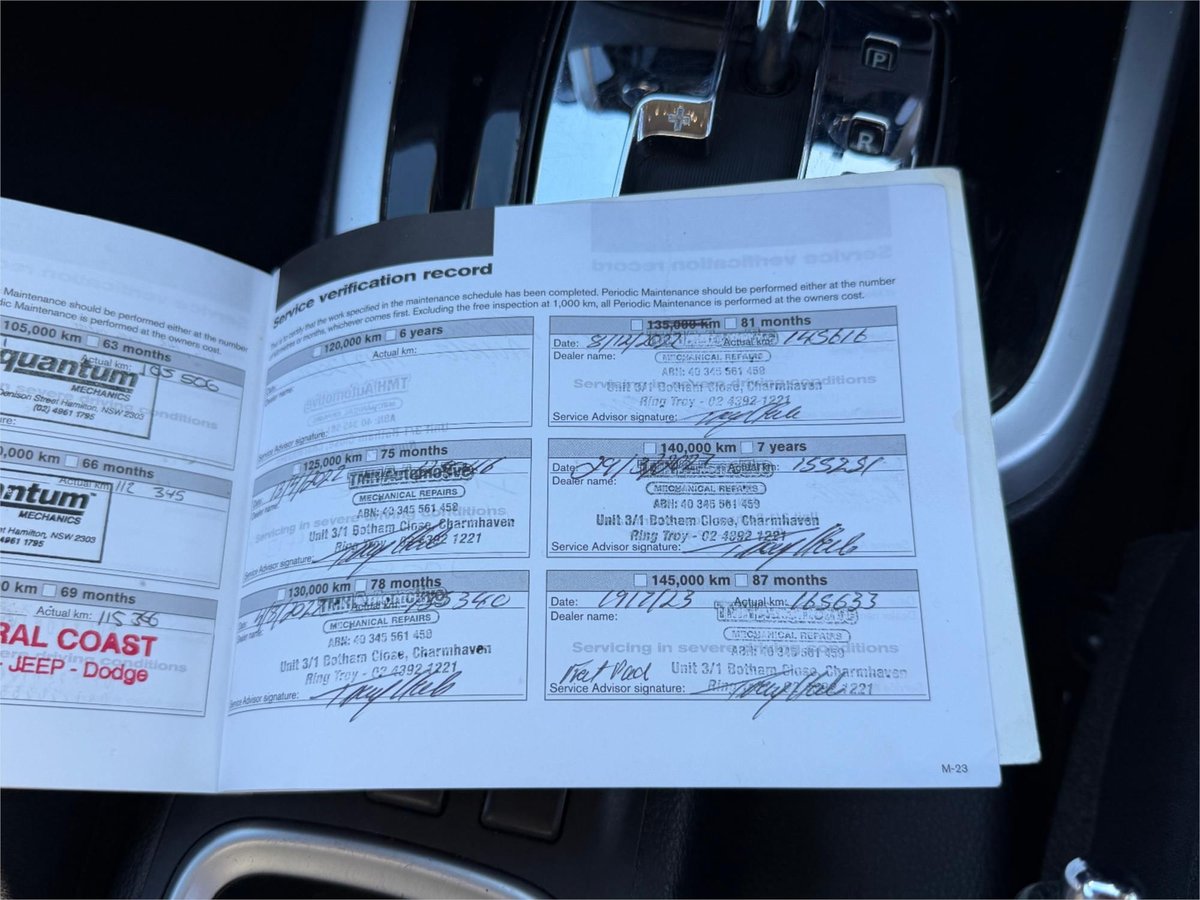 P
R
Maintenance should be performed either at the
dic Maintenance is performed at the owners cost.
105,000 km 63 months
Actual km: 105 506
quantum
MECHANICS
Denison Street Hamilton, NSW 2303
(02) 4961 1795
0,000 km 66 months
Actual km: 112 345
antum
MECHANICS
Hamilton, NSW 2303
4961 1795
00 km 69 months
Actual km:
RAL COAST
- JEEP - Dodge
Service verification record
This is to certify that the work specified in the maintenance schedule has been completed. Periodic Maintenance should be performed either at the number
of kilometres or months, whichever comes first. Excluding the free inspection at 1,000 km, all Periodic Maintenance is performed at the owners cost.
120,000 km 6 years
Date: Actual km:
Dealer name:
Service Advisor signature:
125,000 km 75 months
Date:
Dealer name:
TMH Automotive
MECHANICAL REPAIRS
ABN: 40 345 561 459
Unit 3/1 Botham Close, Charmhaven
Ring Troy - 02 4392 1221
Service Advisor signature:
130,000 km 78 months
Date: Actual km: 135340
Dealer name:
MECHANICAL REPAIRS
ABN: 40 345 561 459
Unit 3/1 Botham Close, Charmhaven
Ring Troy - 02 4392 1221
Service Advisor signature:
135,000 km 81 months
Date: 8/12/2022 Actual km: 145616
Dealer name:
MECHANICAL REPAIRS
ABN: 40 345 561 459
Unit 3/1 Botham Close, Charmhaven
Ring Troy - 02 4392 1221
Service Advisor signature:
140,000 km 7 years
Date: Actual km: 155251
Dealer name:
MECHANICAL REPAIRS
ABN: 40 345 561 459
Unit 3/1 Botham Close, Charmhaven
Ring Troy - 02 4392 1221
Service Advisor signature:
145,000 km 87 months
Date: 19/7/23 Actual km: 165633
Dealer name:
MECHANICAL REPAIRS
ABN: 40 345 561 459
Unit 3/1 Botham Close, Charmhaven
Ring Troy - 02 4392 1221
Service Advisor signature:
M-23